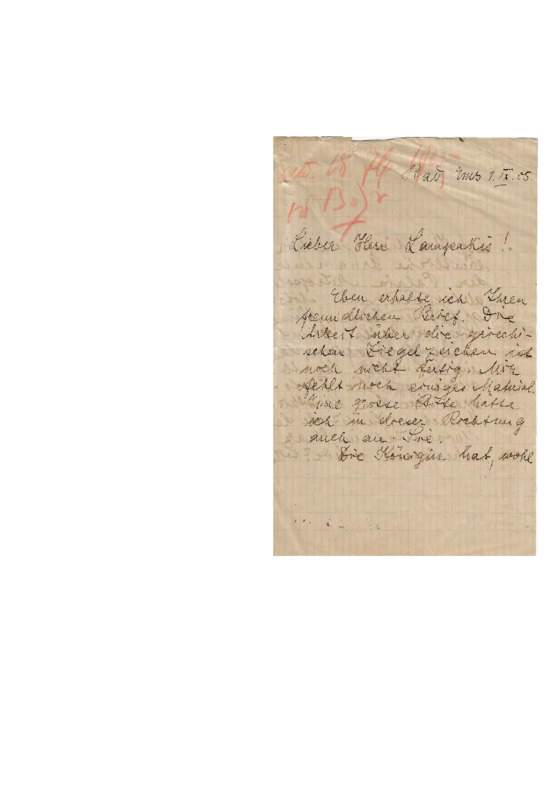 Bad Ems 1.IX.05
Lieber Herr Lampakis!
Eben erhalte ich Ihren
freundlichen Brief. Die
Arbeit über die griechi-
schen Ziegelzeichen ist
noch nicht fertig. Mir
fehlt noch einiges Material.
Eine grosse Bitte hätte
ich in dieser Richtung
auch an Sie.
Die Königin hat, wohl